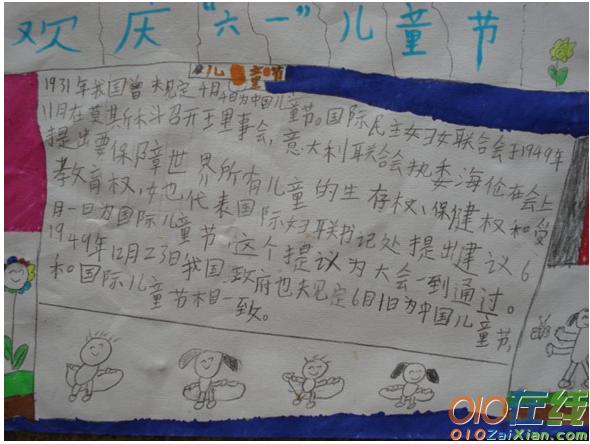 欢庆“六一”儿童节
儿童节
1931年我国曾规定4月4日为中国儿童节。国际民主妇女联合会于1949年
11月在莫斯科召开理事会,意大利联合会执委海伦在会上
提出要保障世界所有儿童的生存权、保健权和受
教育权,她代表国际妇联书记处提出建议6
月一日为国际儿童节,这个提议为大会一到通过。
1949年12月23日我国政府也规定6月1日为中国儿童节,
和国际儿童节相一致。
010在线
010ZaiXian.com